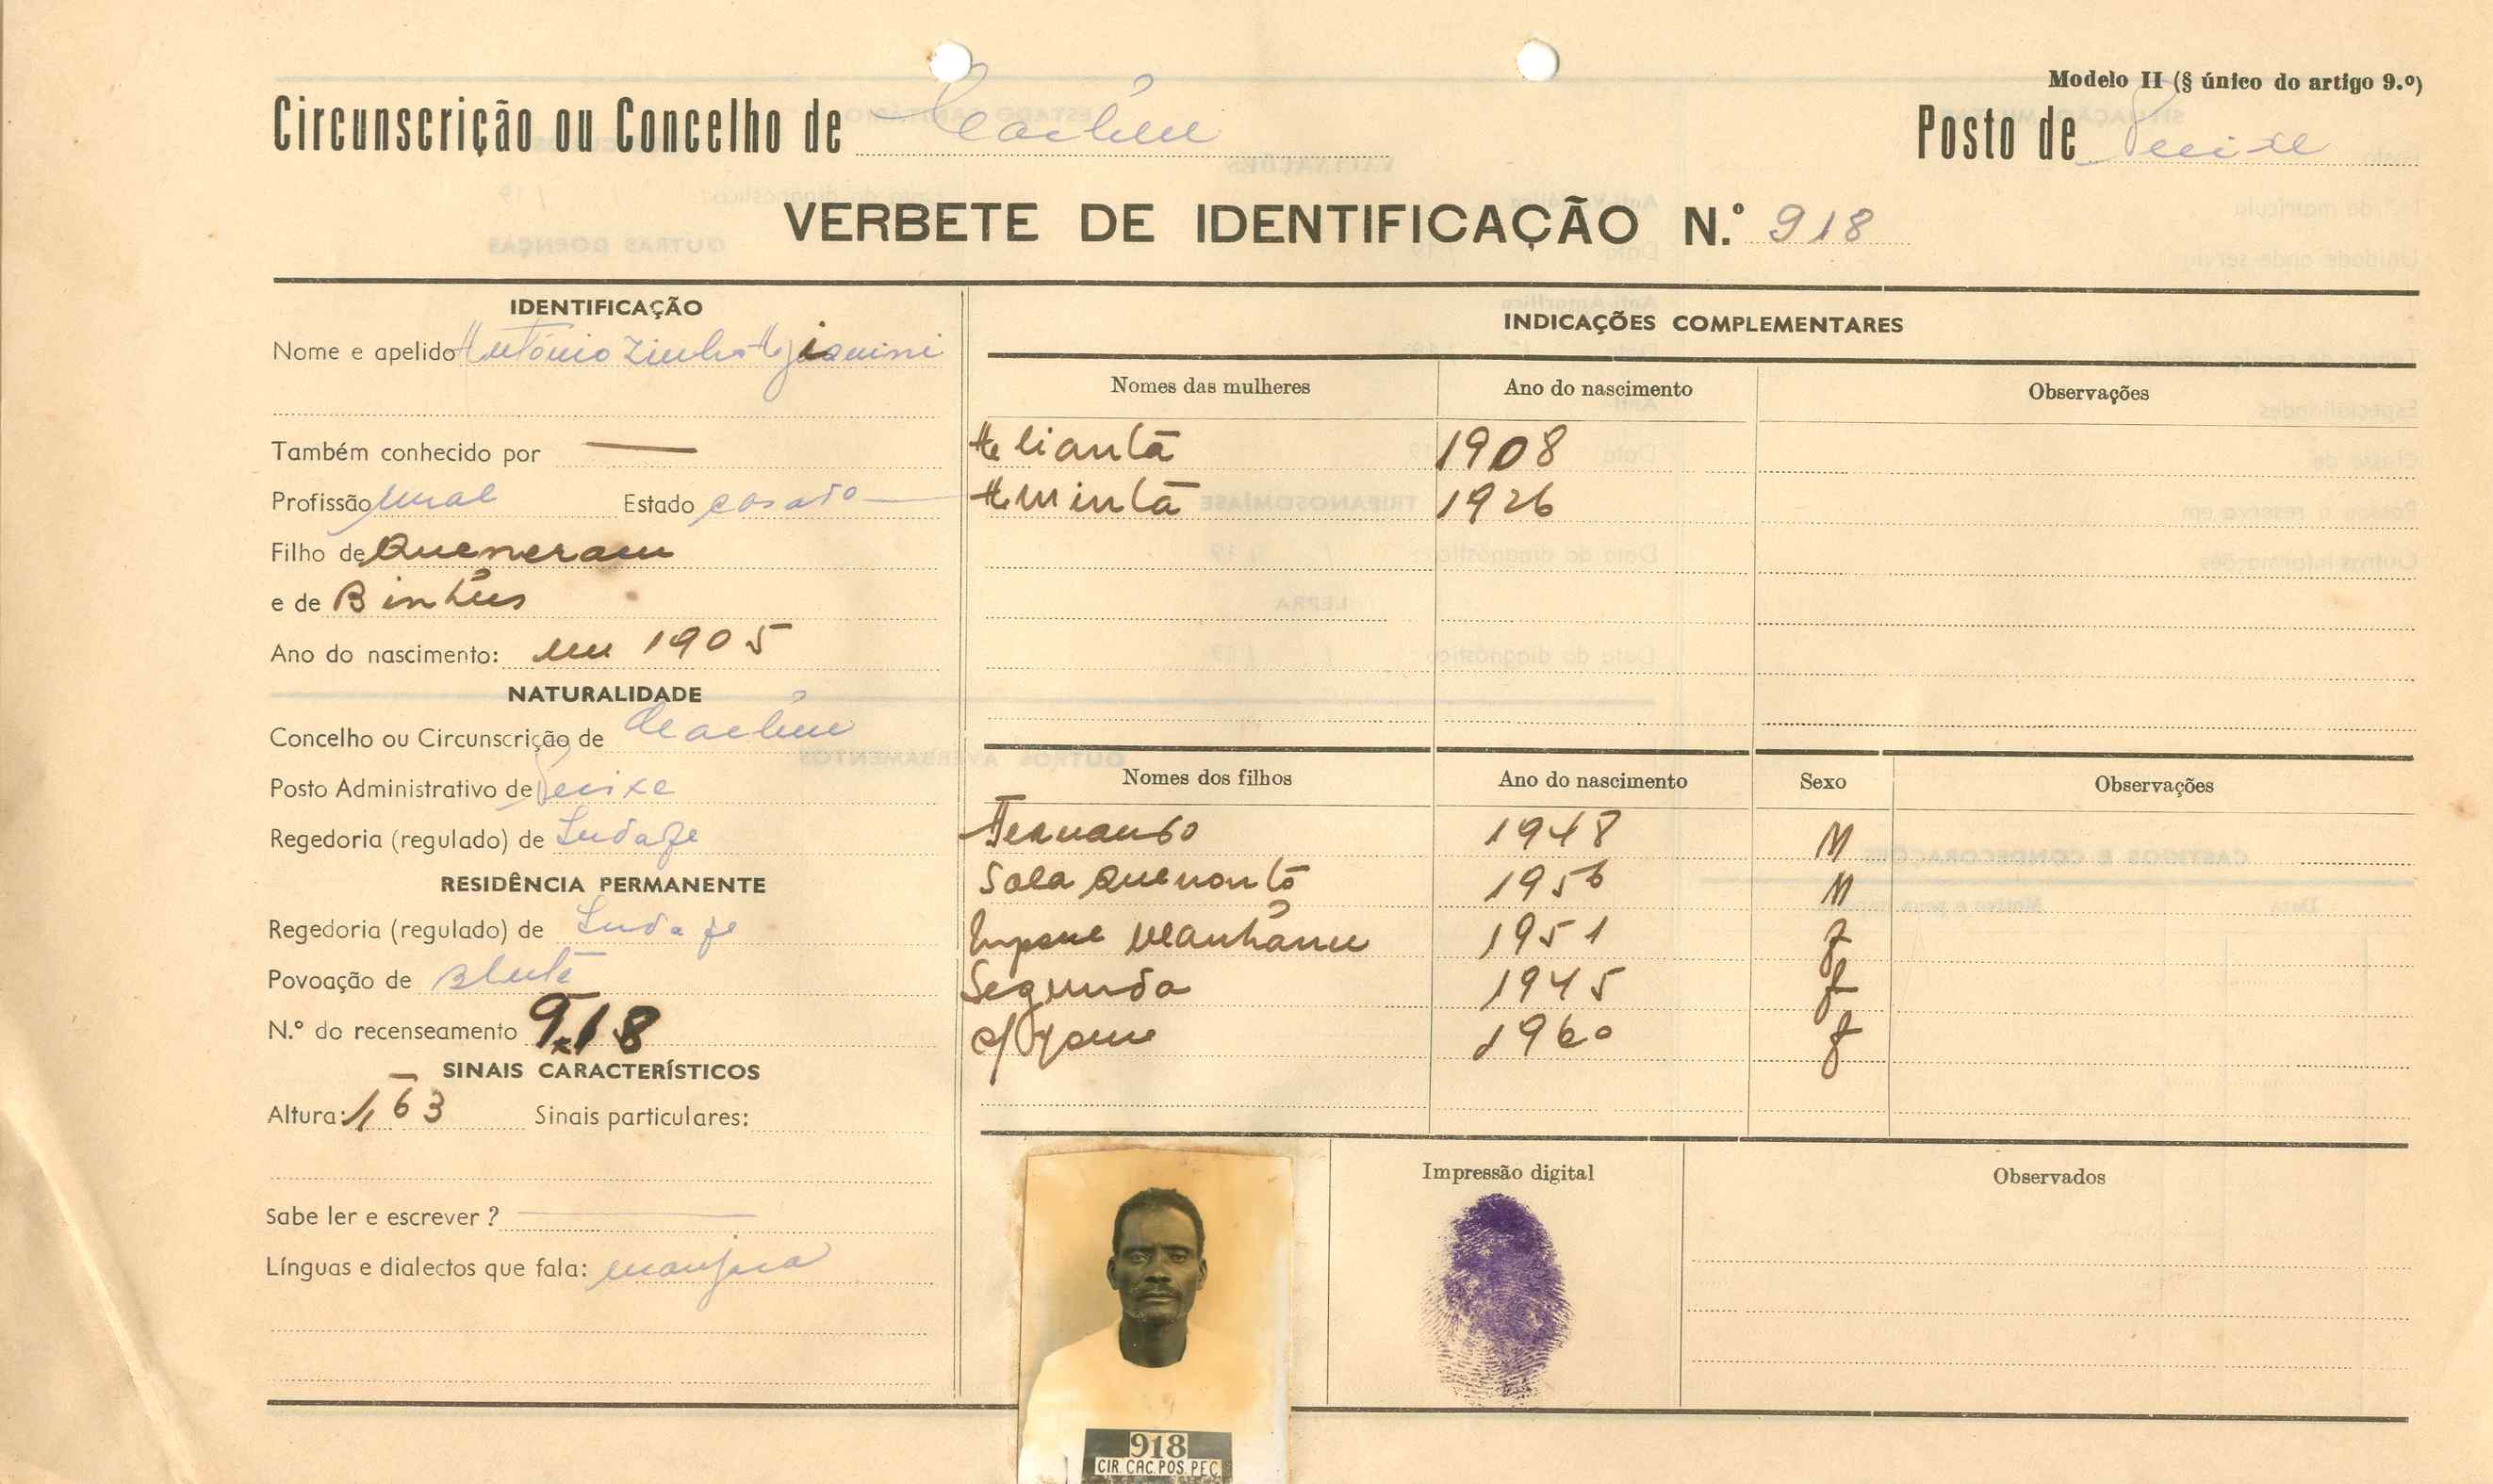 Modelo II (§ único do artigo 9.º)
Circunscrição ou Concelho de Cacheu
Posto de Pecixe
VERBETE DE IDENTIFICAÇÃO N.º 918
IDENTIFICAÇÃO
Nome e apelido António
Também conhecido por —
Profissão rural Estado casado
Filho de Queneram
e de
Ano do nascimento: em 1905
NATURALIDADE
Concelho ou Circunscrição de Cacheu
Posto Administrativo de Pecixe
Regedoria (regulado) de
RESIDÊNCIA PERMANENTE
Regedoria (regulado) de
Povoação de
N.º do recenseamento 918
SINAIS CARACTERÍSTICOS
Altura: 1,63 Sinais particulares:
Sabe ler e escrever ?
Línguas e dialectos que fala: manjaca
INDICAÇÕES COMPLEMENTARES
Nomes das mulheres Ano do nascimento Observações
1908
1926
Nomes dos filhos Ano do nascimento Sexo Observações
Fernando 1948 M
M
1951 f
Segunda 1945 f
1960 f
Impressão digital
Observados
918
CIR. CAC. POS. PEC.